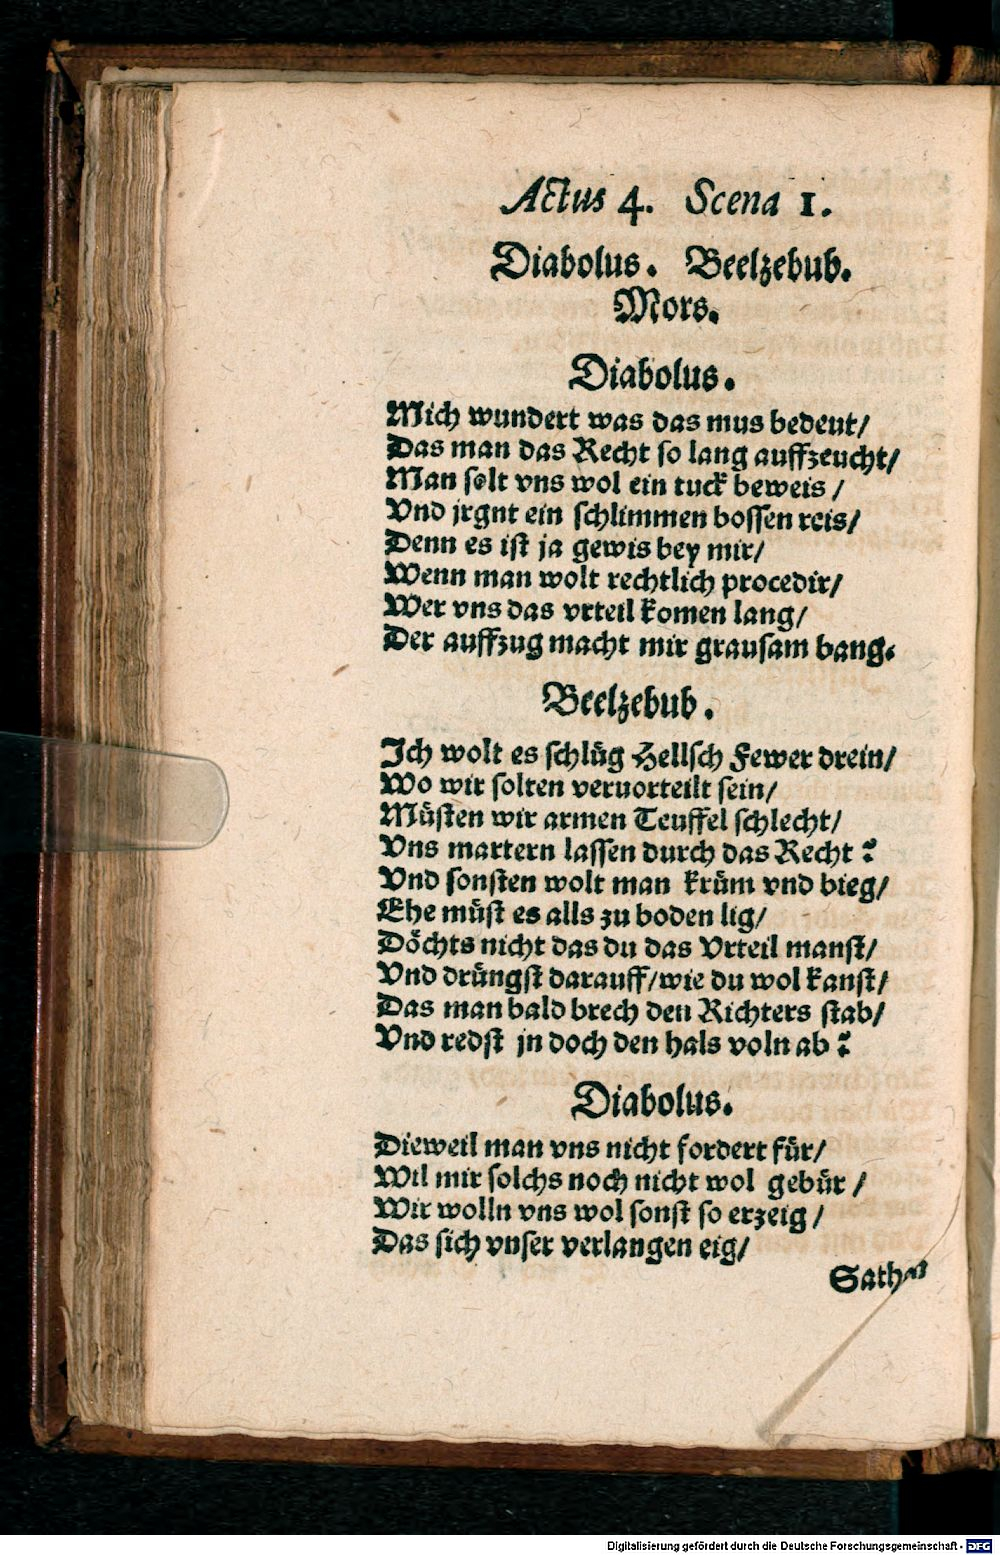 Actus 4. Scena 1.
Diabolus. Beelzebub.
Mors.
Diabolus.
Mich wundert was das mus bedeut/
Das man das Recht so lang auffzeucht/
Man solt vns wol ein tuck beweis /
Vnd jrgnt ein schlimmen bossen reis/
Denn es ist ja gewis bey mir/
Wenn man wolt rechtlich procedir/
Wer vns das vrteil komen lang/
Der auffzug macht mir grausam bang.
Beelzebub.
Ich wolt es schlüg Hellsch Fewer drein/
Wo wir solten veruorteilt sein/
Müsten wir armen Teuffel schlecht/
Vns martern lassen durch das Recht?
Vnd sonsten wolt man krüm vnd bieg/
Ehe müst es alls zu boden lig/
Döchts nicht das du das Vrteil manst/
Vnd drüngst darauff/wie du wol kanst/
Das man bald brech den Richters stab/
Vnd redst jn doch den hals voln ab?
Diabolus.
Dieweil man vns nicht fordert für/
Wil mir solchs noch nicht wol gebür /
Wir wolln vns wol sonst so erzeig /
Das sich vnser verlangen eig/
Sathan
Digitalisierung gefördert durch die Deutsche Forschungsgemeinschaft - DFG